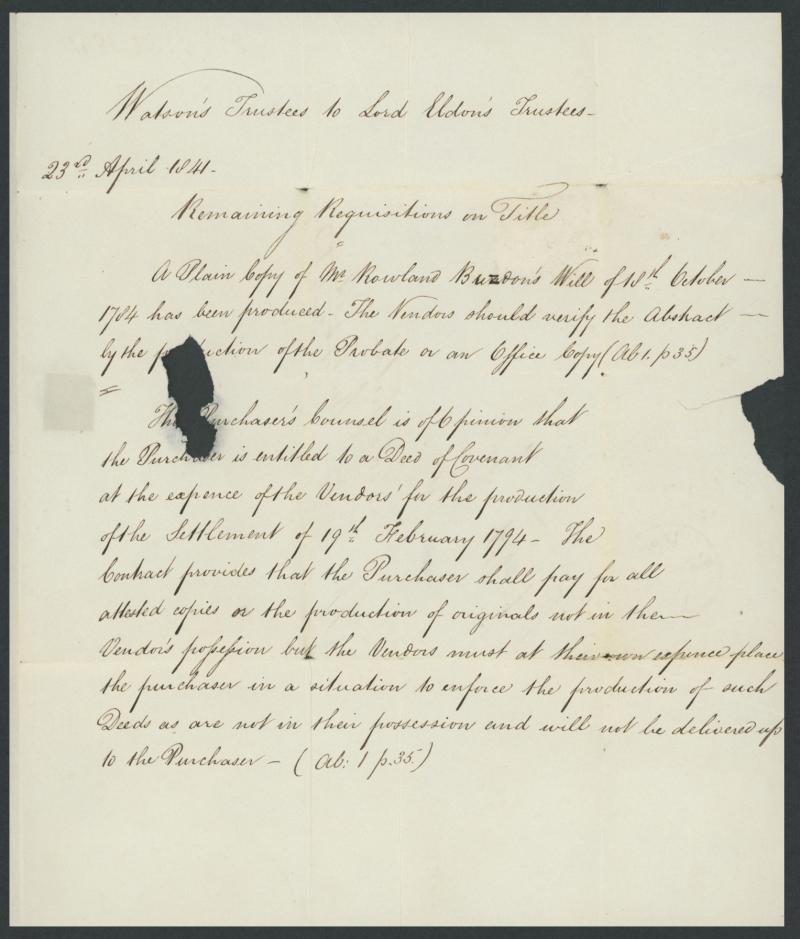 Watson's Trustees to Lord Eldon's Trustees-
23rd April 1841-
Remaining Requisitions on Title
A Plain Copy of Mr Rowland Burdon's Will of 18th October —
1784 has been produced - The Vendors should verify the Abstract —
by the production of the Probate or an Office Copy (Ab 1. p 35)
=
The Purchaser's Counsel is of Opinion that
the Purchaser is entitled to a Deed of Covenant
at the expence of the Vendors' for the production
of the Settlement of 19th February 1794 - The
Contract provides that the Purchaser shall pay for all
attested copies or the production of originals not in the —
Vendor's possession but the Vendors must at their own expence place
the purchaser in a situation to enforce the production of such
Deeds as are not in their possession and will not be delivered up
to the Purchaser - (Ab: 1 p.35.)